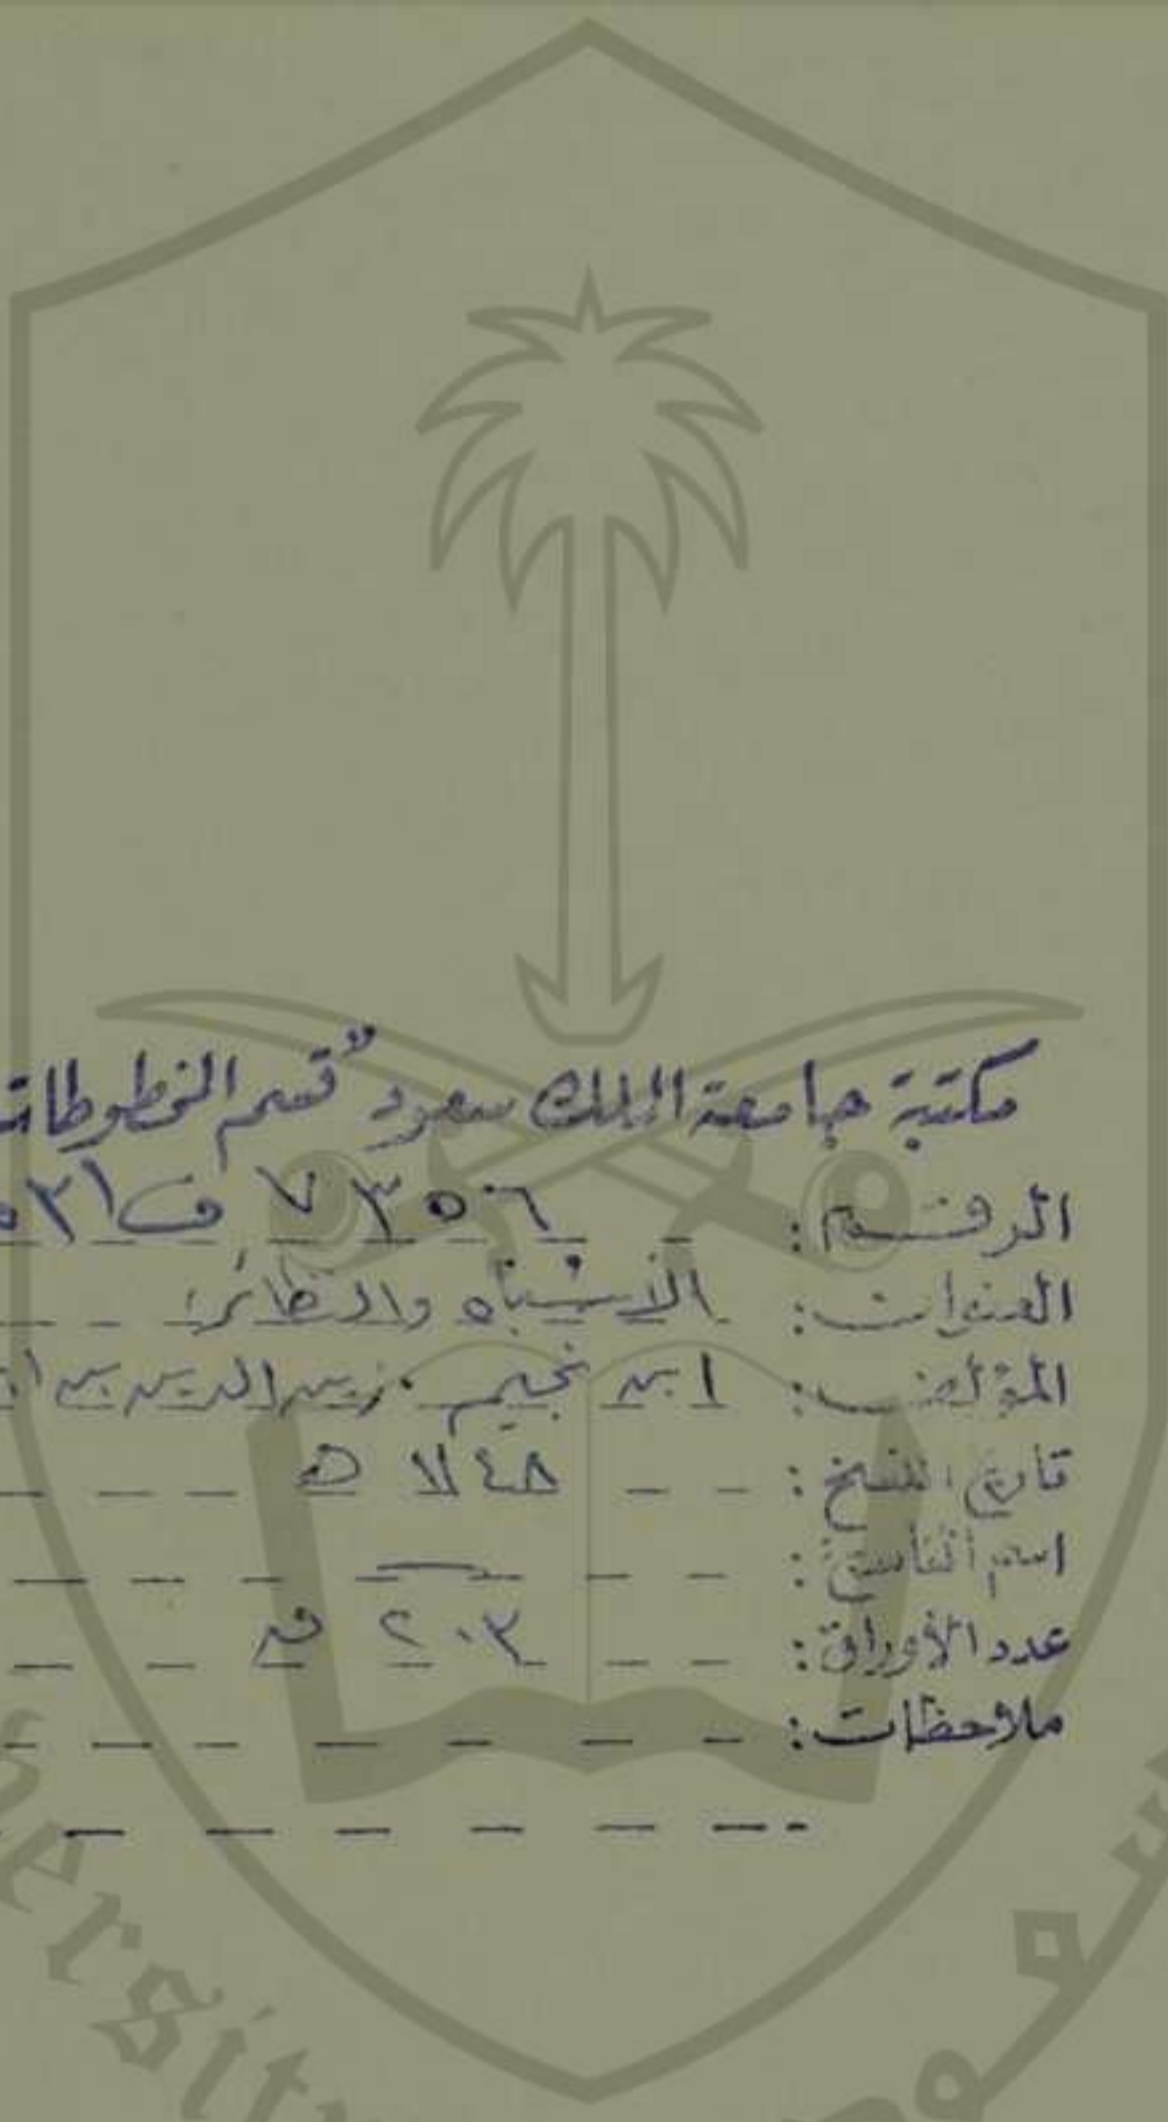 مكتبة جامعة الملك سعود "قسم المخطوطات
الرقم: ٧٣٥٦ ف ٥٣١
العنوان: الأشباه والنظائر
المؤلف: ابن نجيم زين الدين بن
تاريخ النسخ: ١١٤٨ هـ
اسم الناسخ: ــــ
عدد الأوراق: ٢٠٣ ق
ملاحظات:
ersity
سعود